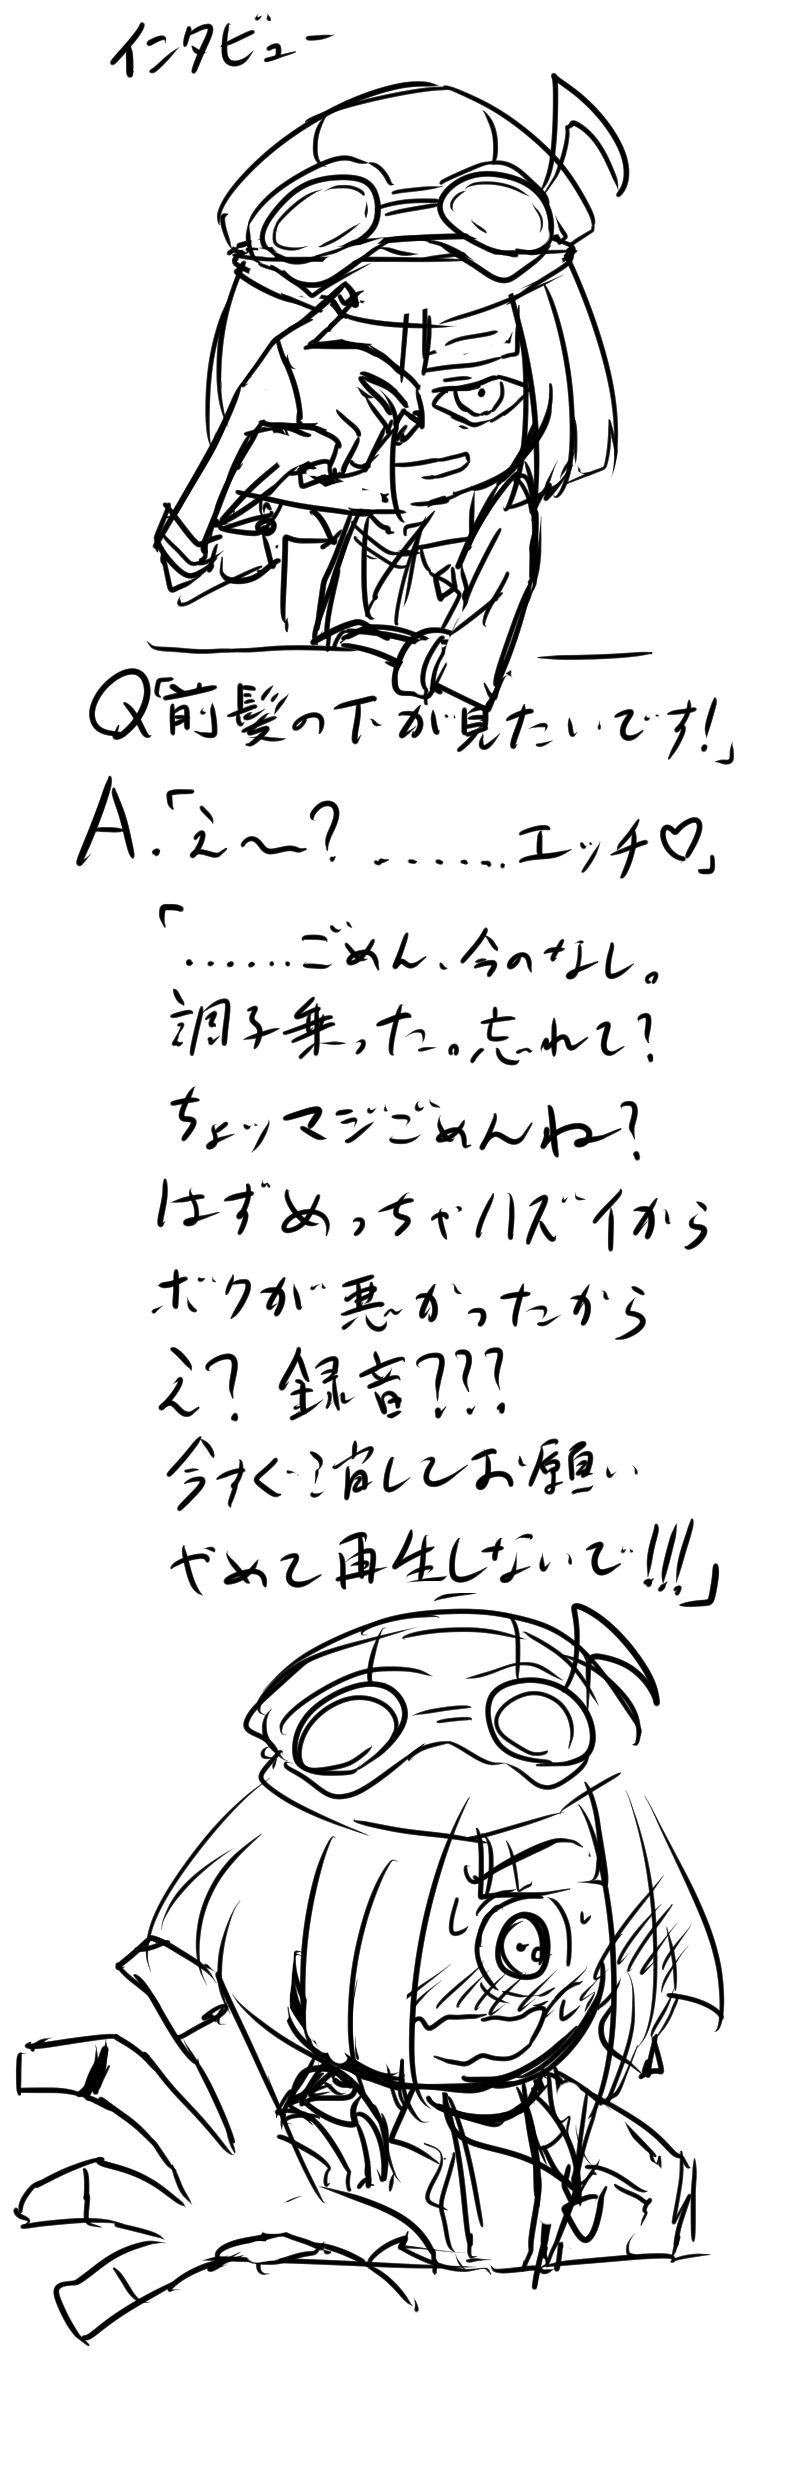 インタビュー
Q「前髪の下が見たいです!」
A.「え〜?......エッチ♡」
「......ごめん、今のなし。
調子乗った。忘れて?
ちょッマジごめんね?
はずめっちゃハズイから
ボクが悪かったから
え? 録音???
今すぐ消してお願い
やめて再生しないで!!!」